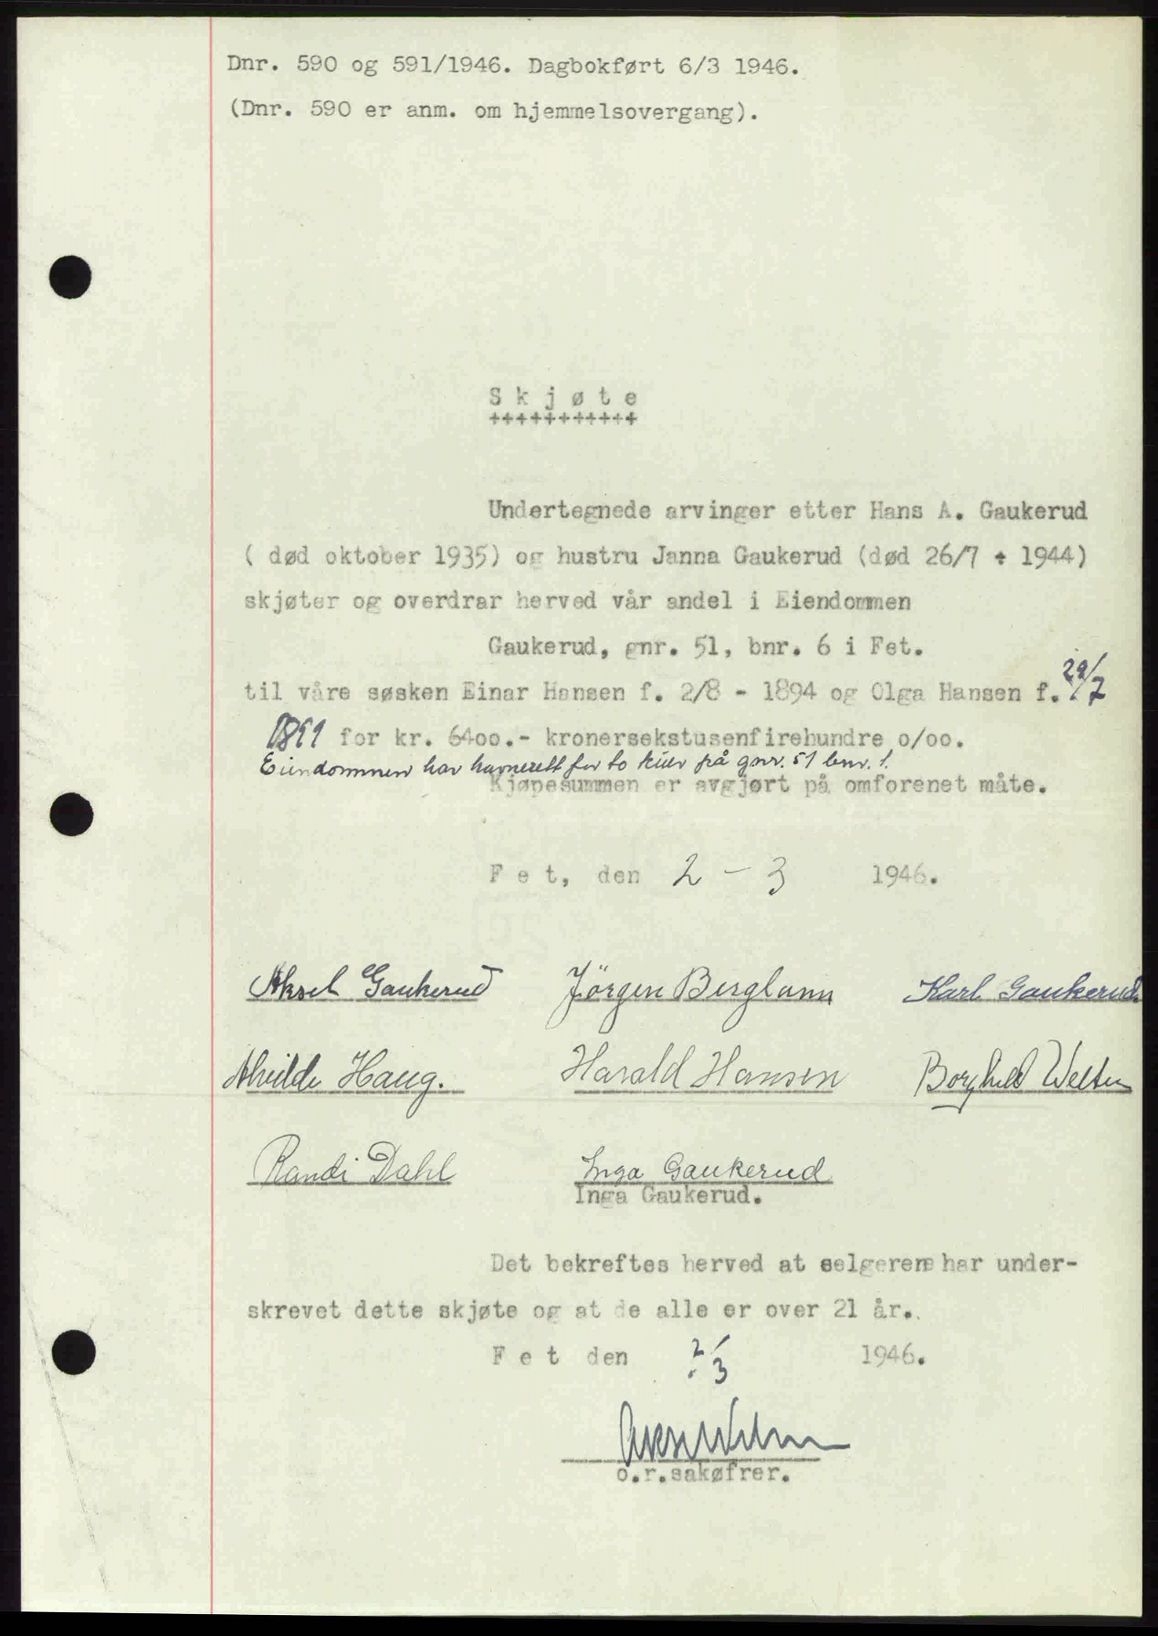 Dnr. 590 og 591/1946. Dagbokført 6/3 1946.
(Dnr. 590 er anm. om hjemmelsovergang).
S k j ø t e
+++++++++++
Undertegnede arvinger etter Hans A. Gaukerud
( død oktober 1935) og hustru Janna Gaukerud (død 26/7 + 1944)
skjøter og overdrar herved vår andel i Eiendommen
Gaukerud, gnr. 51, bnr. 6 i Fet.
til våre søsken Einar Hansen f. 2/8 - 1894 og Olga Hansen f. 29/7
1899 for kr. 6400.- kronersekstusenfirehundre o/oo.
Eiendommen har havnerett for to kuer på gnr. 51 bnr. 1.
Kjøpesummen er avgjort på omforenet måte.
F e t, den 2 - 3 1946.
Aksel Gaukerud Jörgen Berglann Karl Gaukerud
Alvilde Haug. Harald Hansen Borghild
Randi Dahl Inga Gaukerud
Inga Gaukerud.
Det bekreftes herved at selgerene har under-
skrevet dette skjøte og at de alle er over 21 år.
F e t den 2/3 1946.
o.r.sakøfrer.